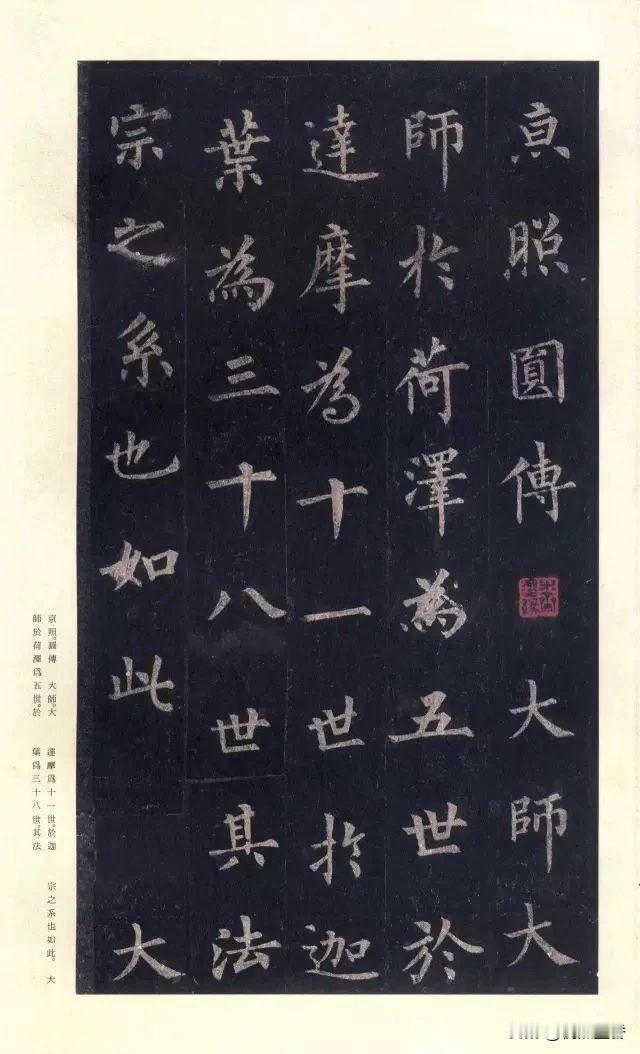 亰照圓傳 大師大
師於荷澤為五世於
達摩為十一世於迦
葉為三十八世其法
宗之系也如此 大
京照。圓傳 大師。大
師於荷澤爲五世。於
達摩爲十一世。於迦
葉爲三十八世。其法
宗之系也如此。 大